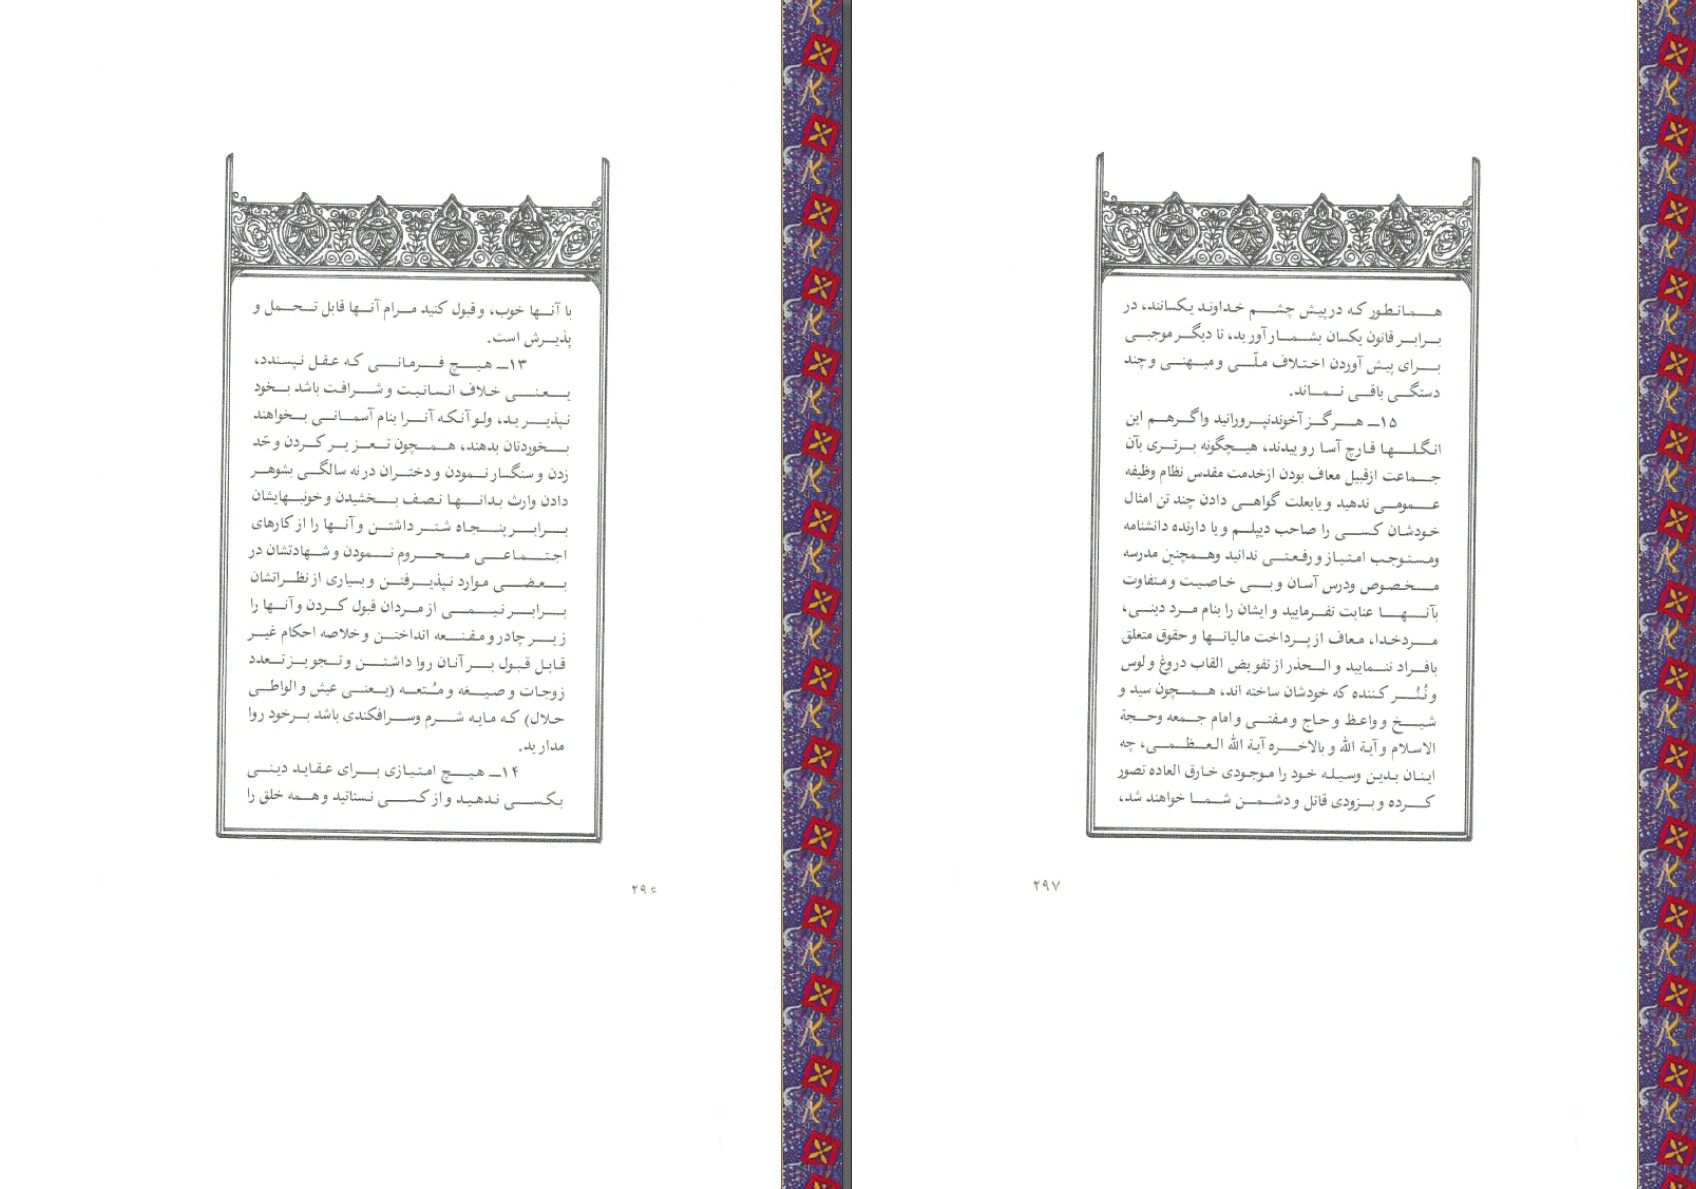 با آنها خوب، و قبول کنید مرام آنها قابل تحمل و
پذیرش است.
۱۳ـ هیچ فرمانی که عقل نپسندد،
یعنی خلاف انسانیت و شرافت باشد بخود
نپذیرید، ولو آنکه آنرا بنام آسمانی بخواهند
بخوردتان بدهند، همچون تعزیر کردن و حد
زدن و سنگسار نمودن و دختران در نه سالگی بشوهر
دادن وارث بدانها نصف بخشیدن و خونبهایشان
برابر پنجاه شتر داشتن و آنها را از کارهای
اجتماعی محروم نمودن و شهادتشان در
بعضی موارد نپذیرفتن و بسیاری از نظراتشان
برابر نیمی از مردان قبول کردن و آنها را
زیر چادر و مقنعه انداختن و خلاصه احکام غیر
قابل قبول بر آنان روا داشتن و تجویز تعدد
زوجات و صیغه و مُتعه (یعنی عیش و الواطی
حلال) که مایه شرم وسرافکندی باشد برخود روا
مدارید.
۱۴ـ هیچ امتیازی برای عقاید دینی
بکسی ندهید و از کسی نستانید و همه خلق را
۲۹۶
همانطور که در پیش چشم خداوند یکسانند، در
برابر قانون یکسان بشمار آورید، تا دیگر موجبی
برای پیش آوردن اختلاف ملّی و میهنی و چند
دستگی باقی نماند.
۱۵ـ هرگز آخوندنپرورانید واگرهم این
انگلها قارچ آسا روییدند، هیچگونه برتری بآن
جماعت ازقبیل معاف بودن ازخدمت مقدس نظام وظیفه
عمومی ندهید و یابعلت گواهی دادن چند تن امثال
خودشان کسی را صاحب دیپلم و یا دارنده دانشنامه
ومستوجب امتیاز و رفعتی ندانید وهمچنین مدرسه
مخصوص ودرس آسان و بی خاصیت و متفاوت
بآنها عنایت نفرمایید و ایشان را بنام مرد دینی،
مردخدا، معاف از پرداخت مالیاتها و حقوق متعلق
بافراد ننمایید و الحذر از تفویض القاب دروغ و لوس
و نُنُر کننده که خودشان ساخته اند، همچون سید و
شیخ و واعظ و حاج و مفتی و امام جمعه وحجة
الاسلام و آیة الله و بالاخره آیة الله العظمی، چه
اینان بدین وسیله خود را موجودی خارق العاده تصور
کرده و بزودی قاتل و دشمن شما خواهند شد،
۲۹۷